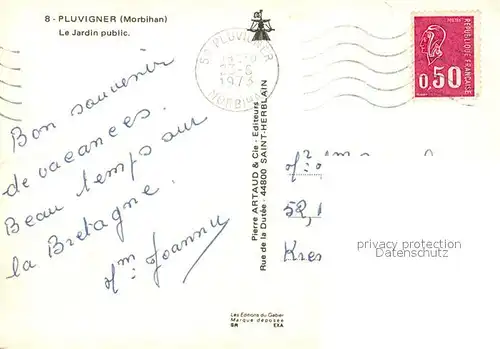 8 - PLUVIGNER (Morbihan)
Le Jardin public.
PLUVIGNER
1973
MORBIHAN
POSTES
REPUBLIQUE FRANÇAISE
0,50
Bon souvenir
de vacances.
Beau temps sur
la Bretagne.
Pierre ARTAUD & Cie - Editeurs
Rue de la Dutée - 44800 SAINT-HERBLAIN
52,
Kres
privacy protection
Datenschutz
Les Editions du Gabier
Marque déposée
EXA